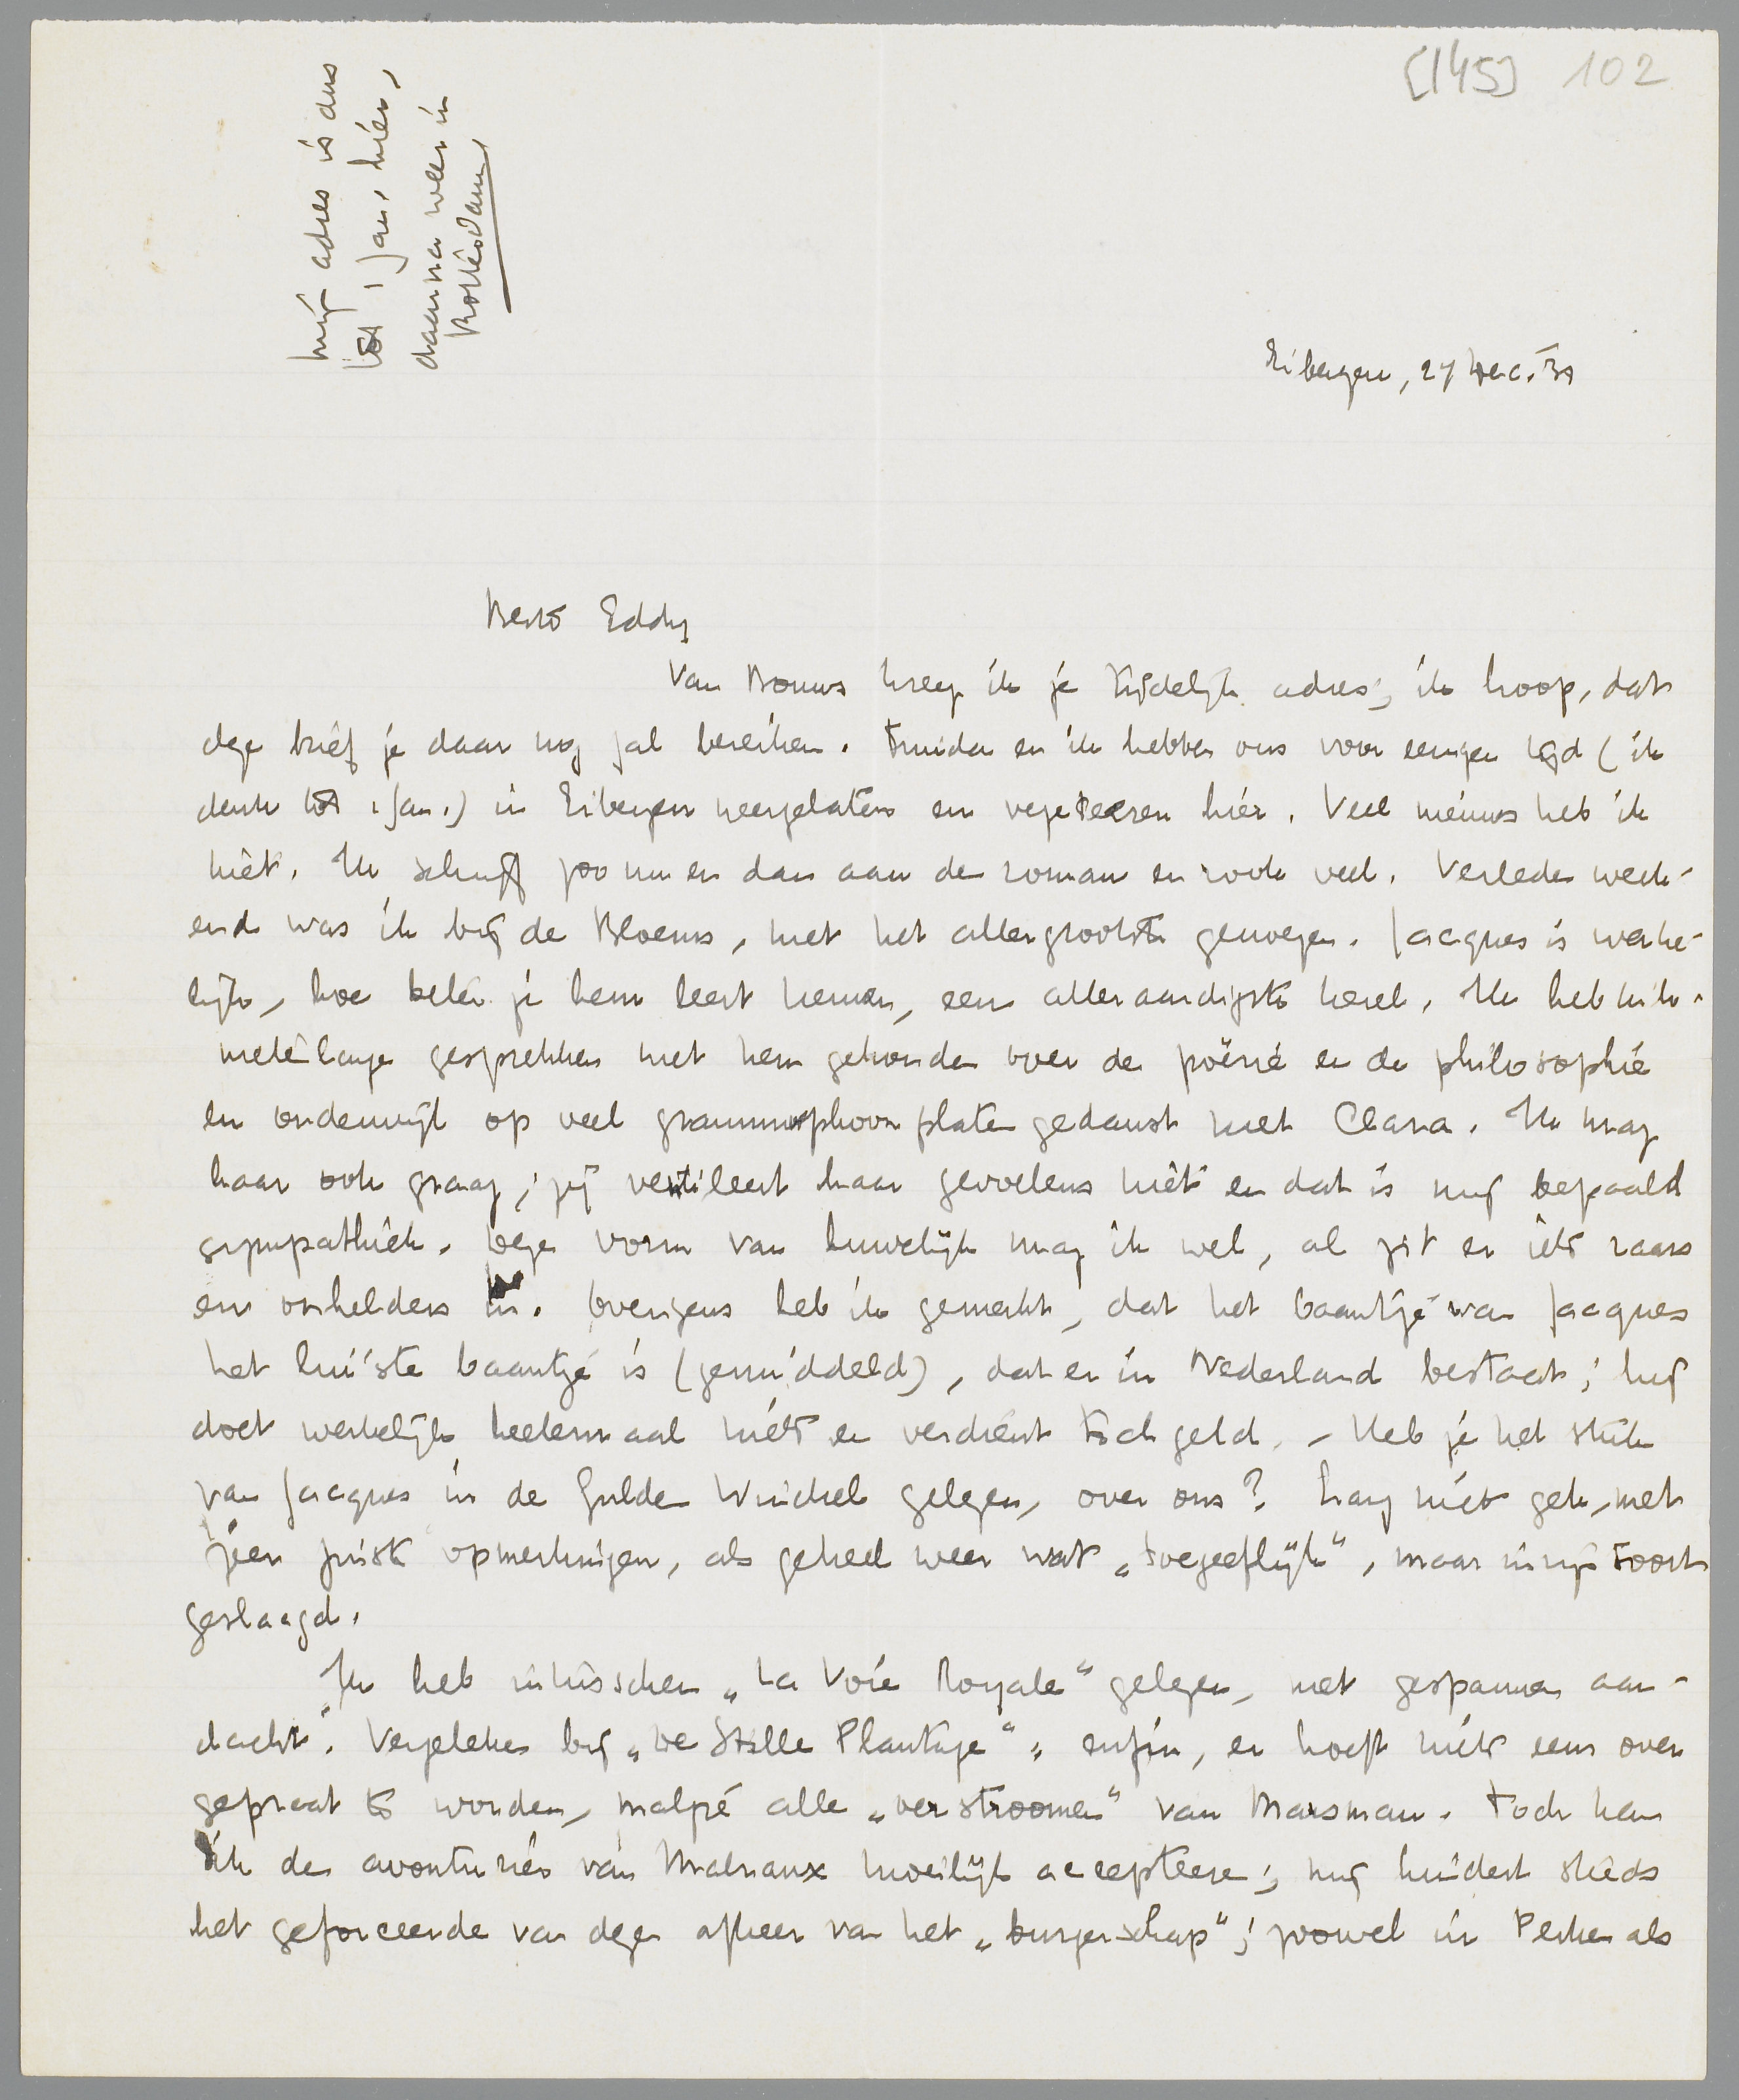 [145] 102
mijn adres is dus
tot 1 Jan. hier,
daarna weer in
Rotterdam
Eibergen, 27 Dec. '31
Beste Eddy
Van Bouws kreeg ik je tijdelijk adres; ik hoop, dat
deze brief je daar nog zal bereiken. Truida en ik hebben ons voor eenigen tijd (ik
denk tot 1 Jan.) in Eibergen neergelaten en vegeteeren hier. Veel nieuws heb ik
niet. Ik schrijf zoo nu en dan aan den roman en rook veel. Verleden week-
end was ik bij de Bloems, met het allergrootste genoegen. Jacques is werke-
lijk, hoe beter je hem leert kennen, een alleraardigste kerel. Ik heb kilo-
meterlange gesprekken met hem gehouden over de poëzie en de philosophie
en onderwijl op veel grammophoonplaten gedanst met Clara. Ik mag
haar ook graag; zij ventileert haar gevoelens niet en dat is mij bepaald
sympathiek. Deze vorm van huwelijk mag ik wel, al zit er iets raars
en onhelders in. Overigens heb ik gemerkt, dat het baantje van Jacques
het luiste baantje is (gemiddeld), dat er in Nederland bestaat; hij
doet werkelijk heelemaal niets en verdient toch geld. – Heb je het stuk
van Jacques in de Gulden Winckel gelezen, over ons? Lang niet gek, met
zeer juiste opmerkingen, als geheel weer wat „toegeeflijk", maar in zijn soort
geslaagd.
Ik heb intusschen „La Voie Royale" gelezen, met gespannen aan-
dacht. Vergeleken bij „De Stille Plantage": enfin, er hoeft niets eens over
gepraat te worden, malgré alle „verstroomen" van Marsman. Toch kan
ik de avonturiers van Malraux moeilijk accepteeren; mij hindert steeds
het geforceerde van dezen afkeer van het „burgerschap"; zoowel in Perken als